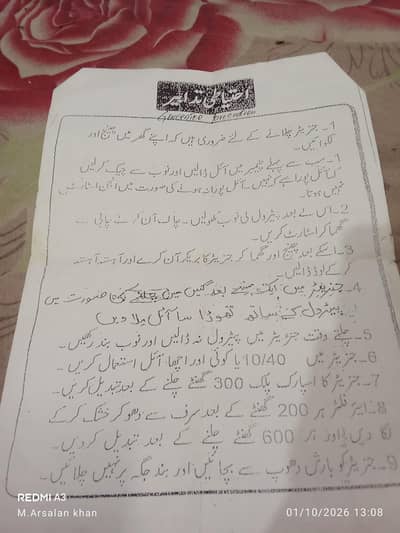 احتیاطی تدابیر
GENERATOR PRECAUTION
1۔ جنریٹر چلانے کے لئے ضروری ہیں کہ اپنے گھر میں چینج اور
لگوائیں۔
1۔ سب سے پہلے چیمبر میں آئل ڈالیں اور ٹوب سے چیک کر لیں
کہ آئل پورا ہے کہ نہیں۔ آئل پورا نہ ہونے کی صورت میں انجن اسٹارٹ
نہیں ہوتا۔
2۔ اس کے بعد پیٹرول کی ٹوب کھولیں۔ چاک آن کر کے چابی سے
گھما کر اسٹارٹ کریں۔
3۔ اسکے بعد چینج اور گھما کر جنریٹر کا بریکر آن کرے اور آہستہ آہستہ
کر کے لوڈ ڈالیں۔
4۔ جنریٹر میں ایک مہینے بعد گیس میں چلانے کی صورت میں
پیٹرول کے ساتھ تھوڑا سا آئل ملا دیں
5۔ چلتے وقت جنریٹر میں پیٹرول نہ ڈالیں اور ٹوب بند رکھیں۔
6۔ جنریٹر میں 10/40 یا کوئی اور اچھا آئل استعمال کریں۔
7۔ جنریٹر کا اسپارک پلک 300 گھنٹے چلنے کے بعد تبدیل کریں۔
8۔ ایئر فلٹر ہر 200 گھنٹے کے بعد سرف سے دھو کر خشک کر کے
لگا دیں اور ہر 600 گھنٹے چلنے کے بعد تبدیل کر دیں۔
9۔ جنریٹر کو بارش دھوپ سے بچائیں اور بند جگہ پر نہیں چلائیں۔
REDMI A3
M.Arsalan khan
01/10/2026 13:08